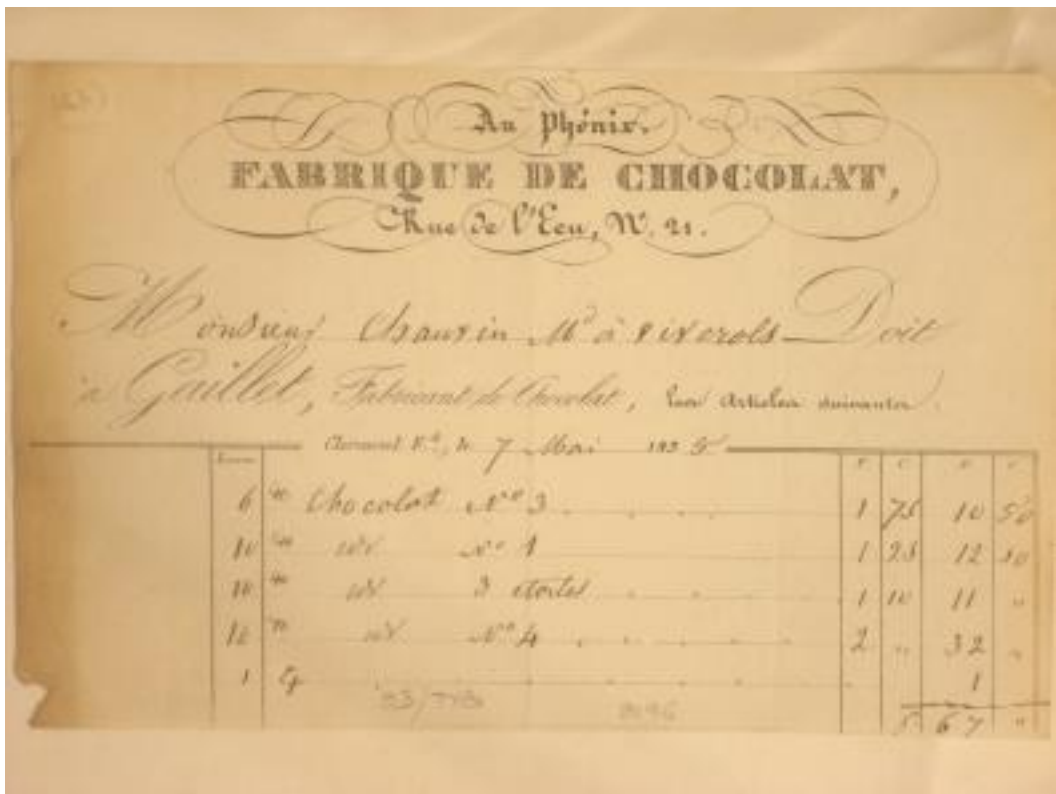 Au Phénix.
FABRIQUE DE CHOCOLAT,
Rue de l'Ecu, N. 21.
Monsieur Chauvin Md à Viverols Doit
à Gaillet, Fabricant de Chocolat, Les Articles suivants.
Clermont Fd, le 7 Mai 183
F C F C
6 Chocolat No 3 1 75 10 50
10 id No 1 1 25 12 50
10 id 3 etoiles 1 10 11 "
id No 4 2 " 32 "
1 1
67 "